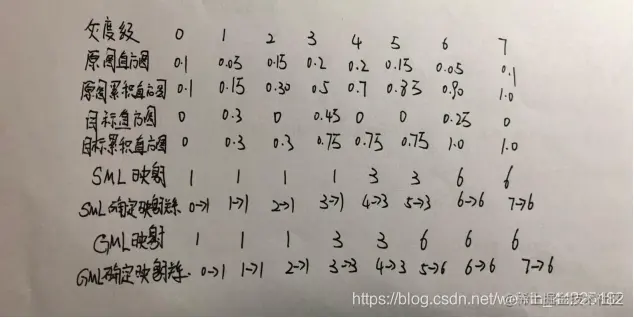 灰度级 0 1 2 3 4 5 6 7
原图直方图 0.1 0.05 0.15 0.2 0.2 0.15 0.05 0.1
原图累积直方图 0.1 0.15 0.30 0.5 0.7 0.85 0.90 1.0
目标直方图 0 0.3 0 0.45 0 0 0.25 0
目标累积直方图 0 0.3 0.3 0.75 0.75 0.75 1.0 1.0
SML映射 1 1 1 1 3 3 6 6
SML确定映射关系 0→1 1→1 2→1 3→1 4→3 5→3 6→6 7→6
GML映射 1 1 1 3 3 6 6 6
GML确定映射关系 0→1 1→1 2→1 3→3 4→3 5→6 6→6 7→6
https://blog.csdn.net/